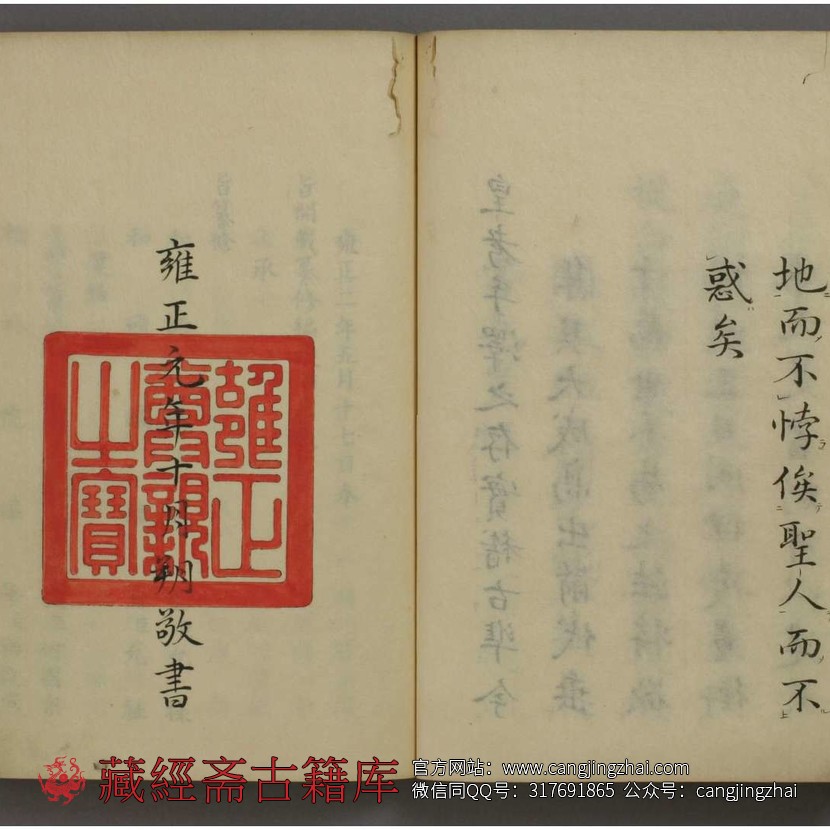 地而不悖俟聖人而不
惑矣
雍正元年十月朔敬書
雍正
宸翰
之寶
藏經斋古籍库
官方网站：www.cangjingzhai.com
微信同QQ号：317691865 公众号：cangjingzhai